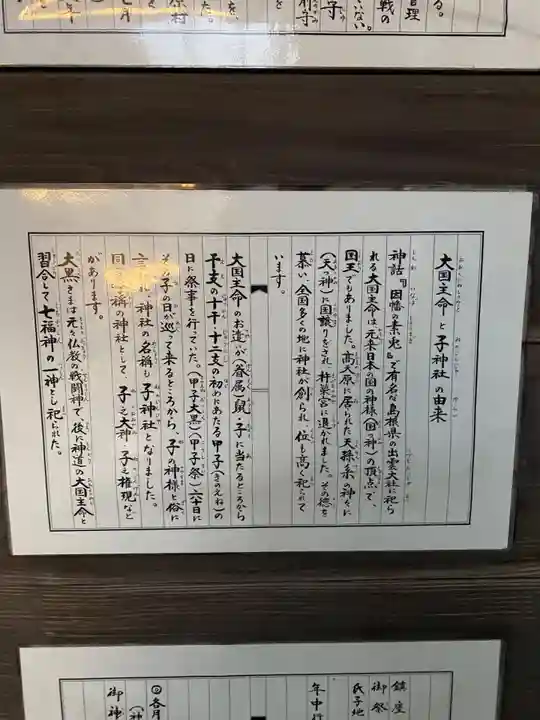 大国主命と子神社の由来
神話『因幡の素兎』で有名な島根県の出雲大社に祀ら
れる大国主命は元来日本の国の神様（国つ神）の頂点で、
国王でもありました。高天原に居られた天孫系の神々に
（天つ神）に国譲りをされ杵築宮に退かれました。その徳を
慕い全国多くの地に神社が創られ位も高く祀られて
います。
大国主命のお遣いが（眷属）鼠・子に当たるところから
干支の十干・十二支の初めにあたる甲子（きのえね）の
日に祭事を行ていた。（甲子大黒）（甲子祭）六十日に
その子の日が巡って来るところから、子の神様と俗に
言われ、神社の名称も子神社となりました。
同
称の神社として、子之大神・子権現など
があります。
大黒さまは元々仏教の戦闘神で、後に神道の大国主命と
習合して七福神の一神とし祀られた。
る。
管理
戦の
いない。
別寺
子
を
た。
原村
鎮座
御祭
氏子地
年中行
各月
御神